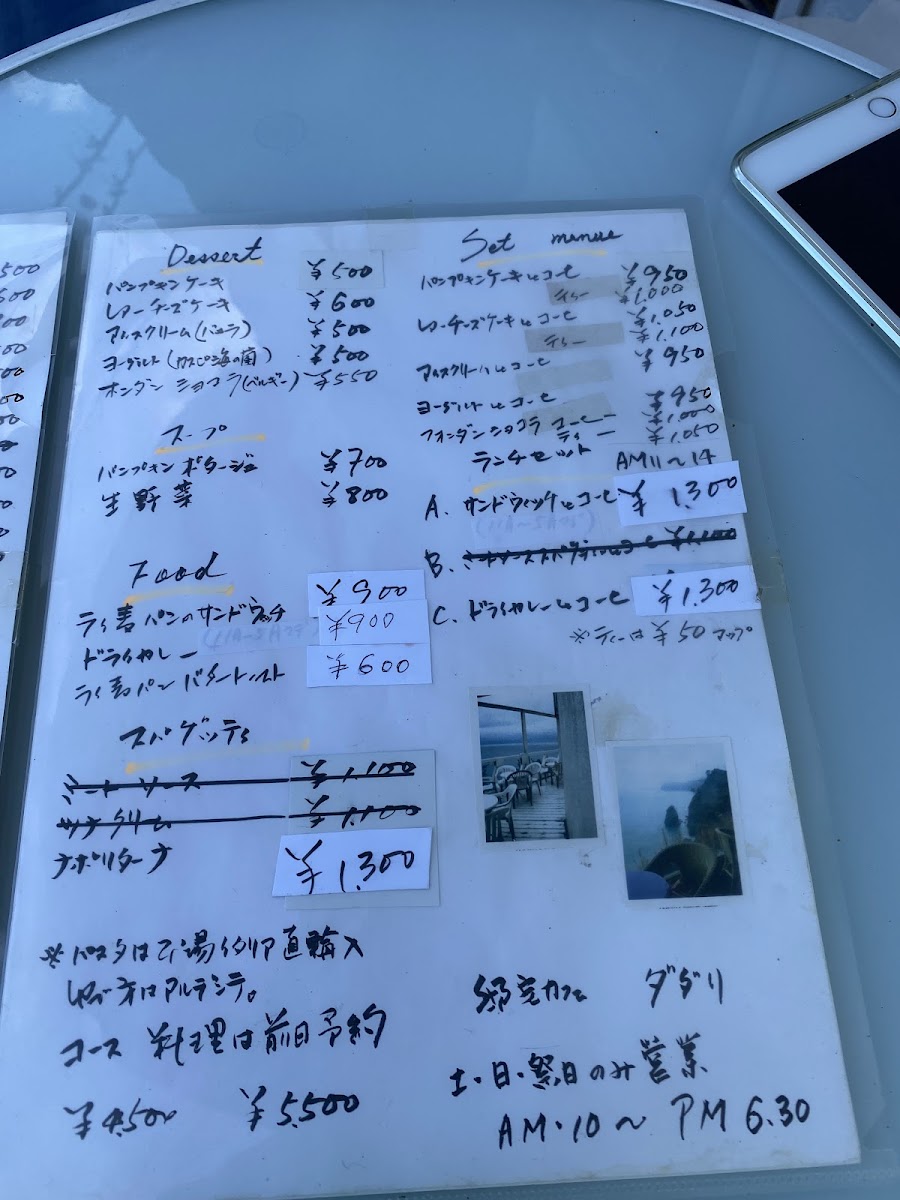 Dessert
パンプキンケーキ ¥500
レアーチーズケーキ ¥600
アイスクリーム(バニラ) ¥500
ヨーグルト(カスピ海の菌) ¥500
オンダン ショコラ(ベルギー) ¥550
スープ
パンプキン ポタージュ ¥700
生野菜 ¥800
Food
ライ麦パンのサンドウィッチ ¥900
ドライカレー ¥900
ライ麦パン バタートースト ¥600
スパゲッティ
ミートソース ¥1.100
ツナクリーム ¥1.100
ナポリターナ ¥1.300
※パスタは 直購入
ゆで方はアルデンテ。
コース 料理は前日予約
¥4.500 ¥5.500
Set menue
パンプキンケーキとコーヒ ¥950
ティー ¥1.000
レアーチーズケーキとコーヒ ¥1.050
ティー ¥1.100
アイスクリームとコーヒ ¥950
ヨーグルトとコーヒ ¥950
フォンダンショコラ コーヒー ¥1.000
ティー ¥1.050
ランチセット AM11〜14
A. サンドウィッチとコーヒ ¥1.300
B. ミートソーススパゲティとコーヒ ¥1.100
C. ドライカレーとコーヒ ¥1.300
※ティーは¥50アップ
邸宅カフェ ダダリ
土・日・祭日のみ営業
AM・10〜PM 6.30